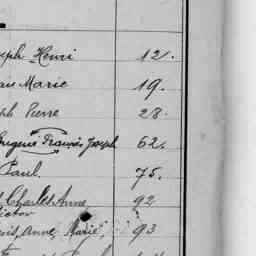 Henri 12.
Marie 19.
Pierre 28.
Eugène Francis Joseph 62.
Paul. 75.
Charles Anne, 92
Victor
Anne, Marie, 93